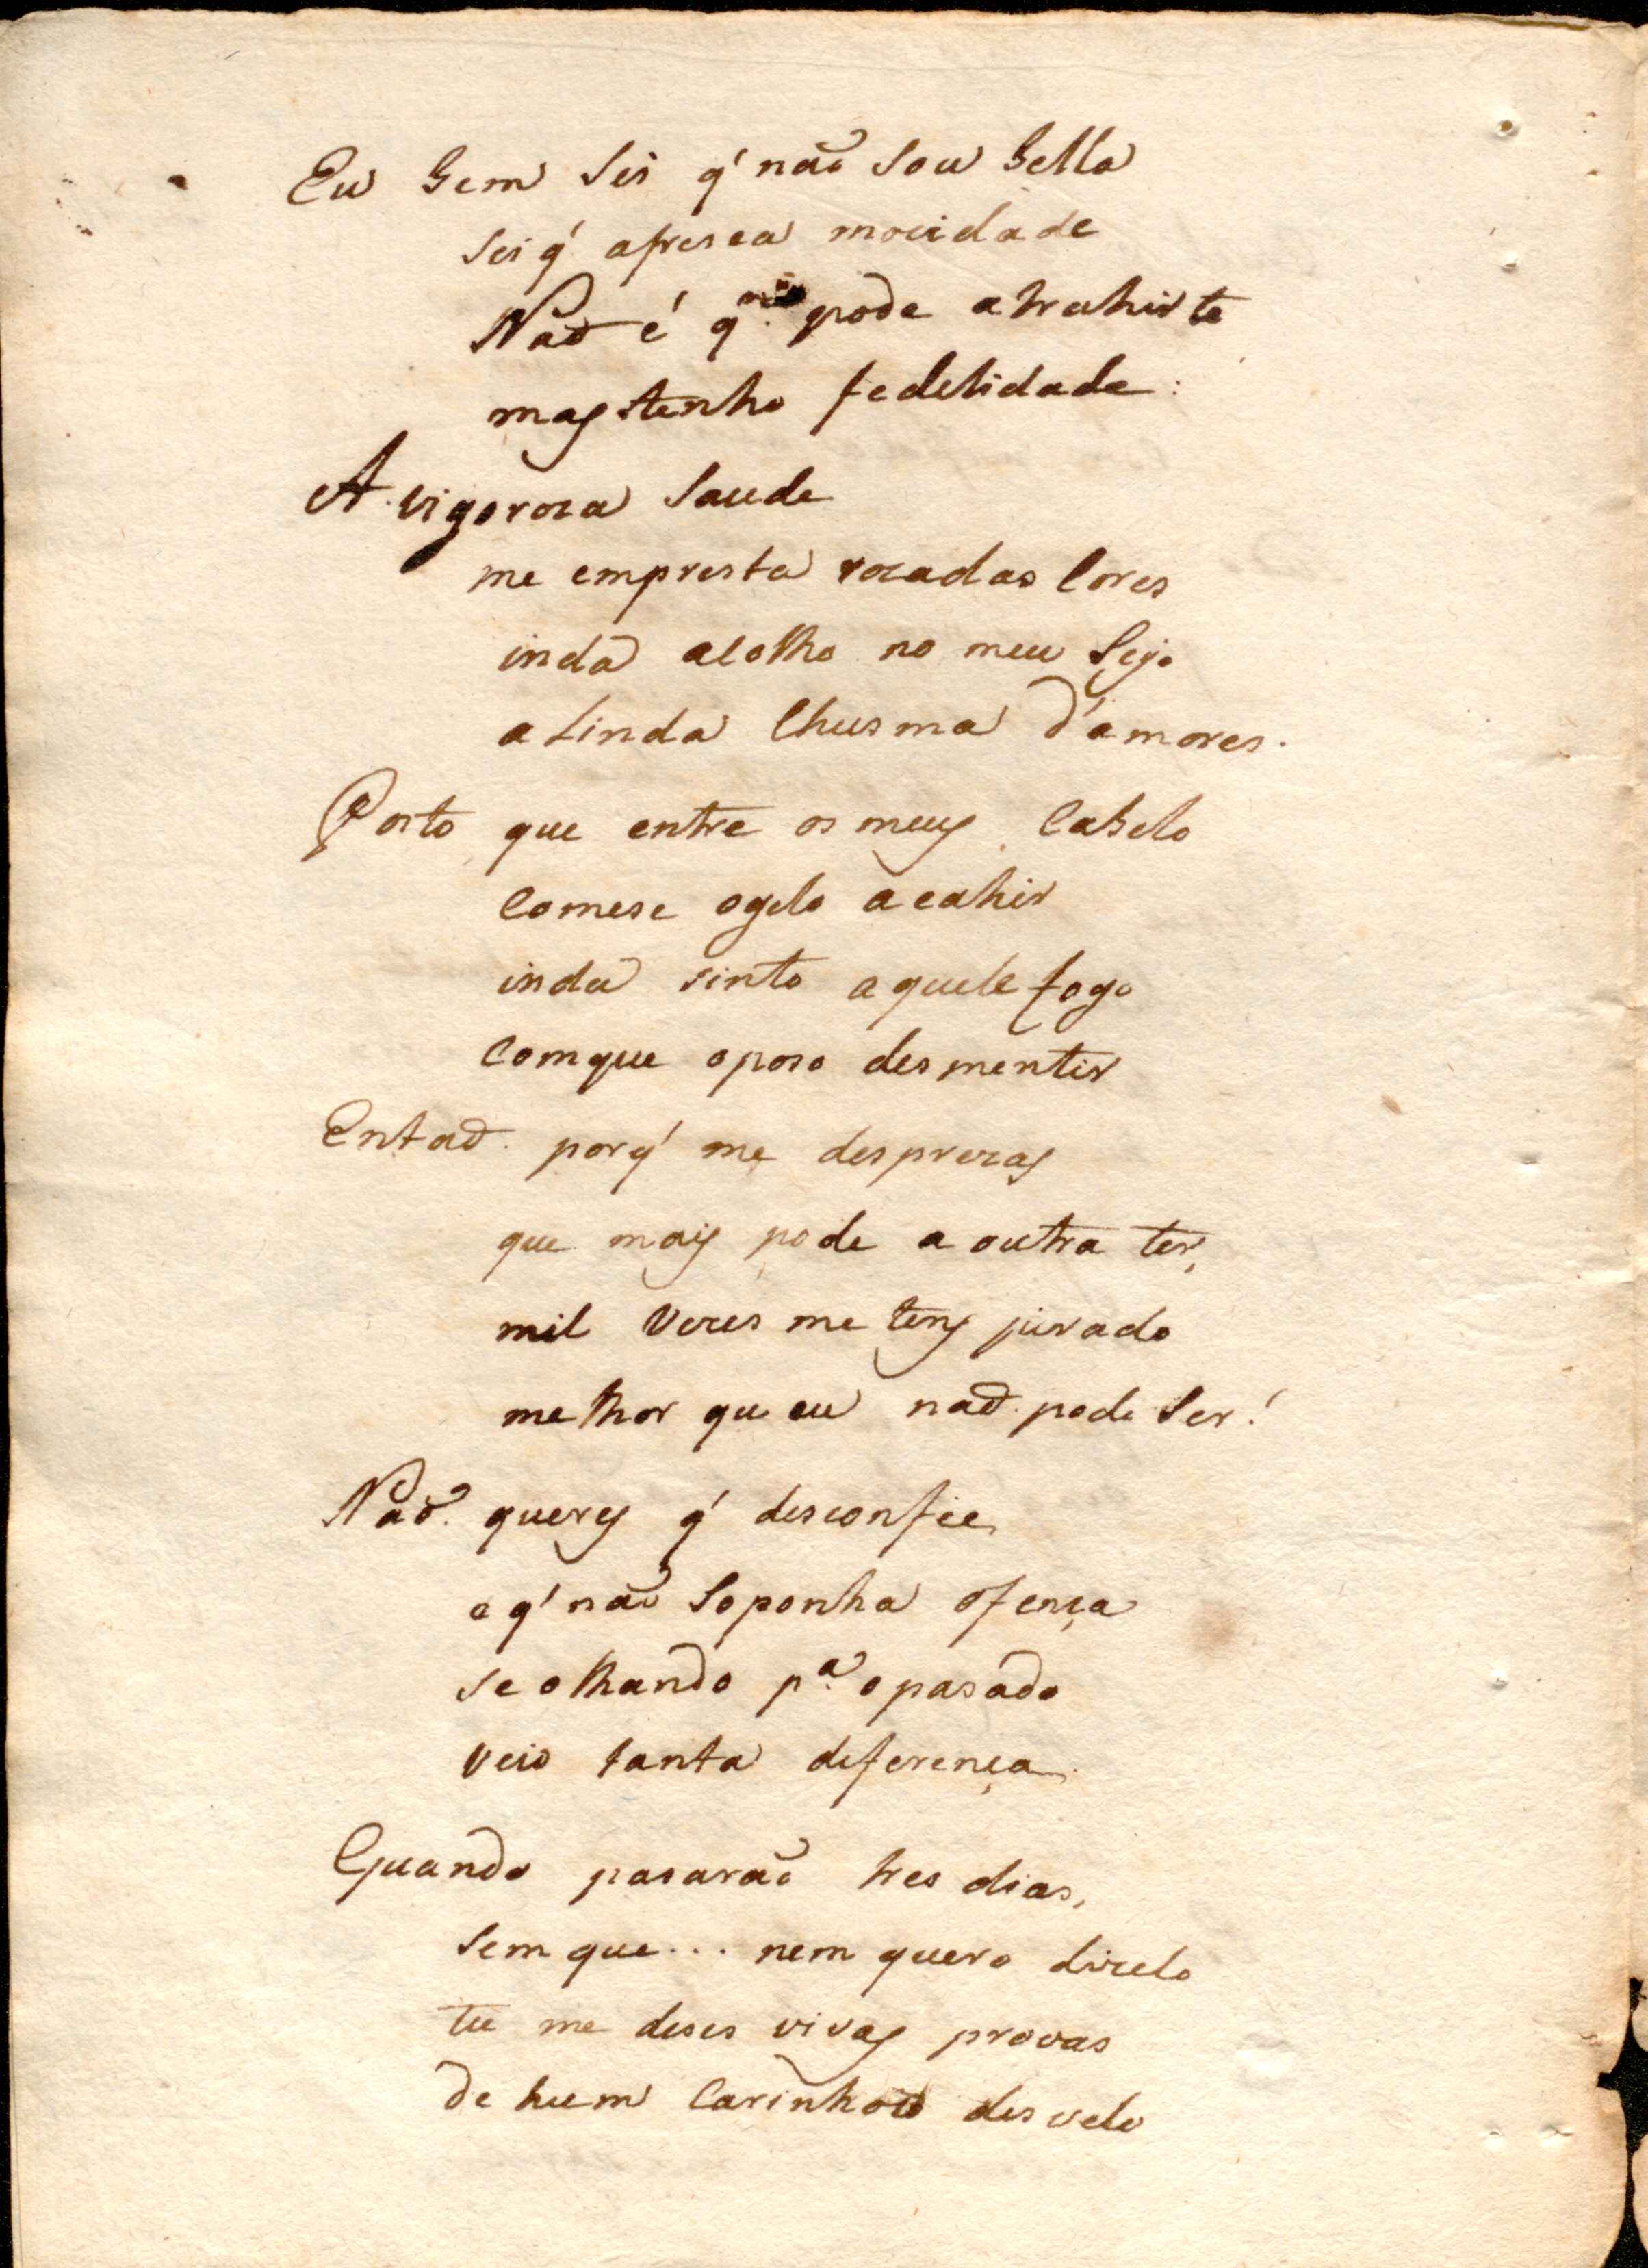 Eu bem sei q' não sou bella
sei q' afresca mocidade
Naõ é q. pode atrahirte
mas tenho fedelidade:
A vigoroza saude
me empresta rozadas cores
inda acolho no meu sejo
a linda chusma d'amores.
Posto que entre os meus cabelo
comese ogelo acahir
inda sinto aquele fogo
comque oposo desmentir
Entaõ porq' me desprezas
que mais pode a outra ter,
mil vezes me tens jurado
melhor qu eu naõ pode ser!
Naõ queres q' desconfie,
e q' não soponha ofença
se olhando pª opasado
veio tanta deferença.
Quando pasarão tres dias,
sem que... nem quero dizelo
tu me deses vivas provas
de hum desvelo